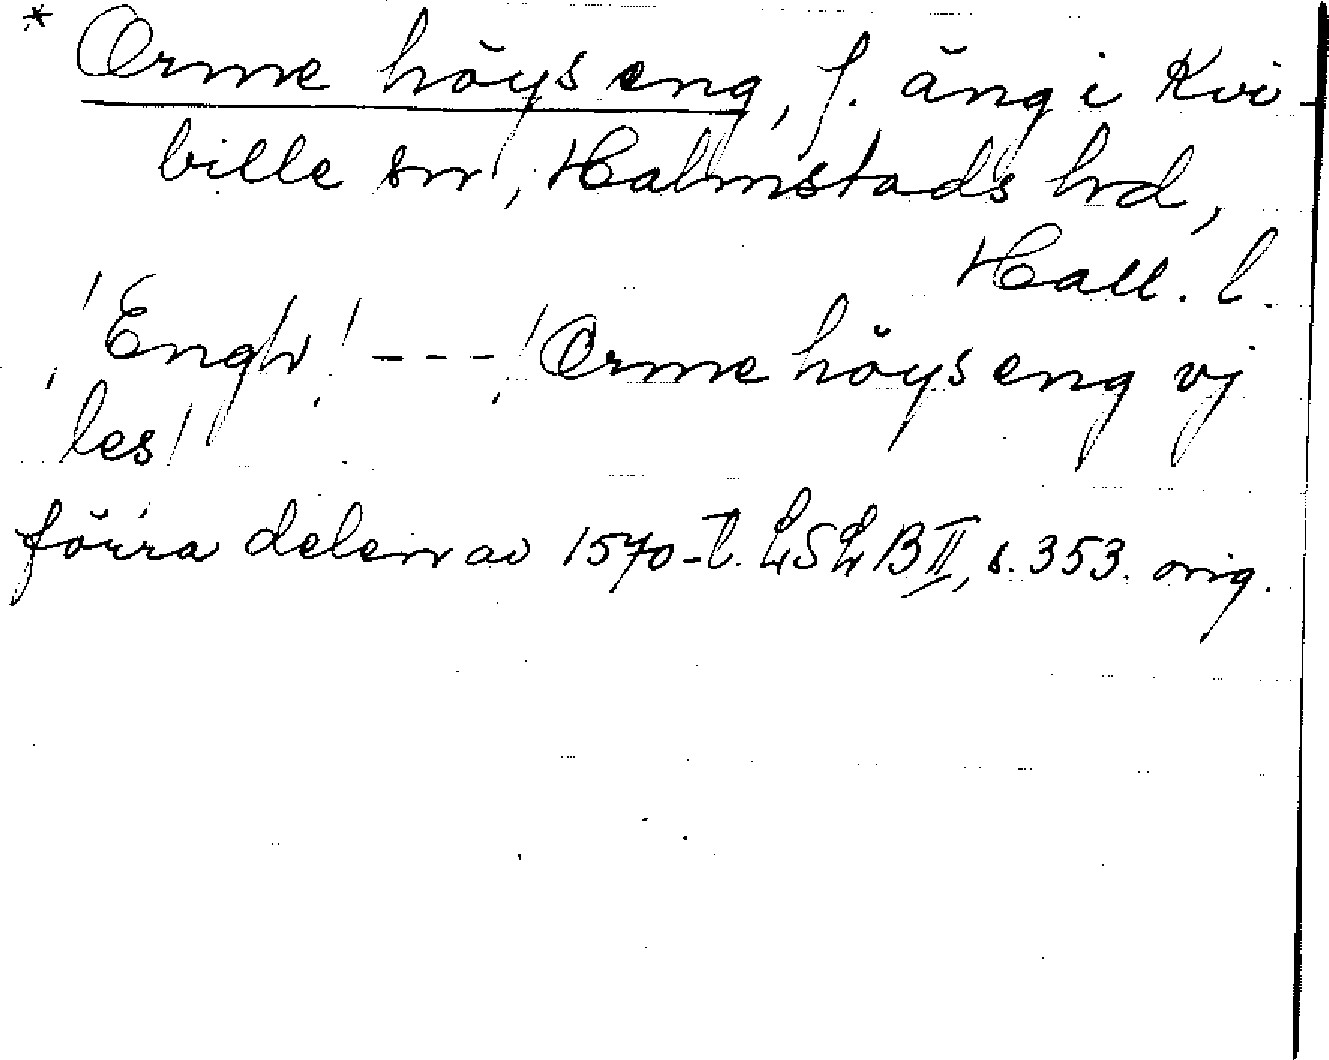 * Orme höys eng, f. äng i Kvi-
bille sn, Halmstads hd,
Hall. l.
! Engh ! - - - ! Orme höys eng vj
les !
förra delen av 1570-t. LSLB II, s. 353. orig.